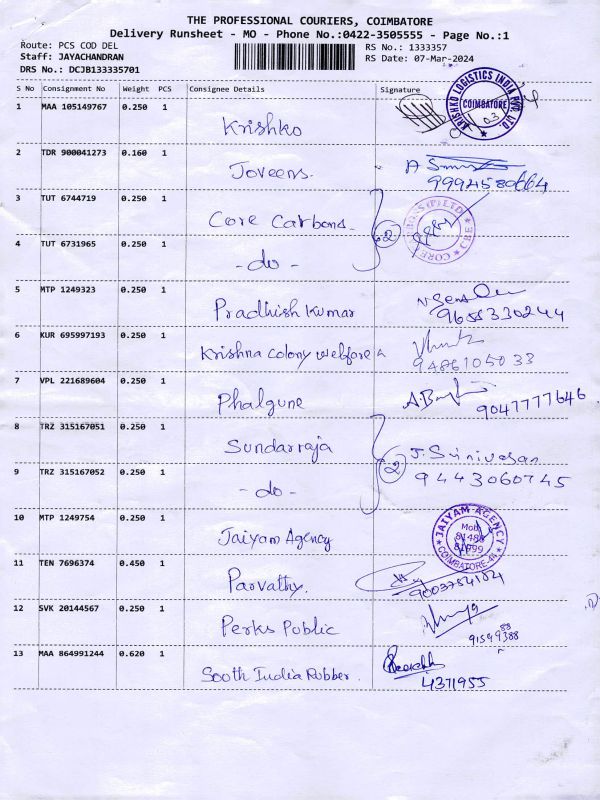 THE PROFESSIONAL COURIERS, COIMBATORE
Delivery Runsheet - MO - Phone No.:0422-3505555 - Page No.:1
Route: PCS COD DEL
RS No.: 1333357
Staff: JAYACHANDRAN
RS Date: 07-Mar-2024
DRS No.: DCJB133335701
S No Consignment No Weight PCS Consignee Details Signature
1 MAA 105149767 0.250 1 Krishko
KRISHKO LOGISTICS INDIA PVT. LTD. COIMBATORE
2 TDR 900041273 0.160 1 Joveens.
3 TUT 6744719 0.250 1 Core Carbons. 2
4 TUT 6731965 0.250 1 - do -
5 MTP 1249323 0.250 1 Pradhish Kumar
9655330244
6 KUR 695997193 0.250 1 Krishna colony welfore
9486105033
7 VPL 221689604 0.250 1 Phalgune
9047777646
8 TRZ 315167051 0.250 1 Sundarraja J. Srinivasan
2 9443060745
9 TRZ 315167052 0.250 1 - do -
10 MTP 1249754 0.250 1 Jaiyam Agency
JAIYAM AGENCY Mob COIMBATORE-44
11 TEN 7696374 0.450 1 Parvathy.
12 SVK 20144567 0.250 1 Perks Public
13 MAA 864991244 0.620 1 South India Rubber.
4371955